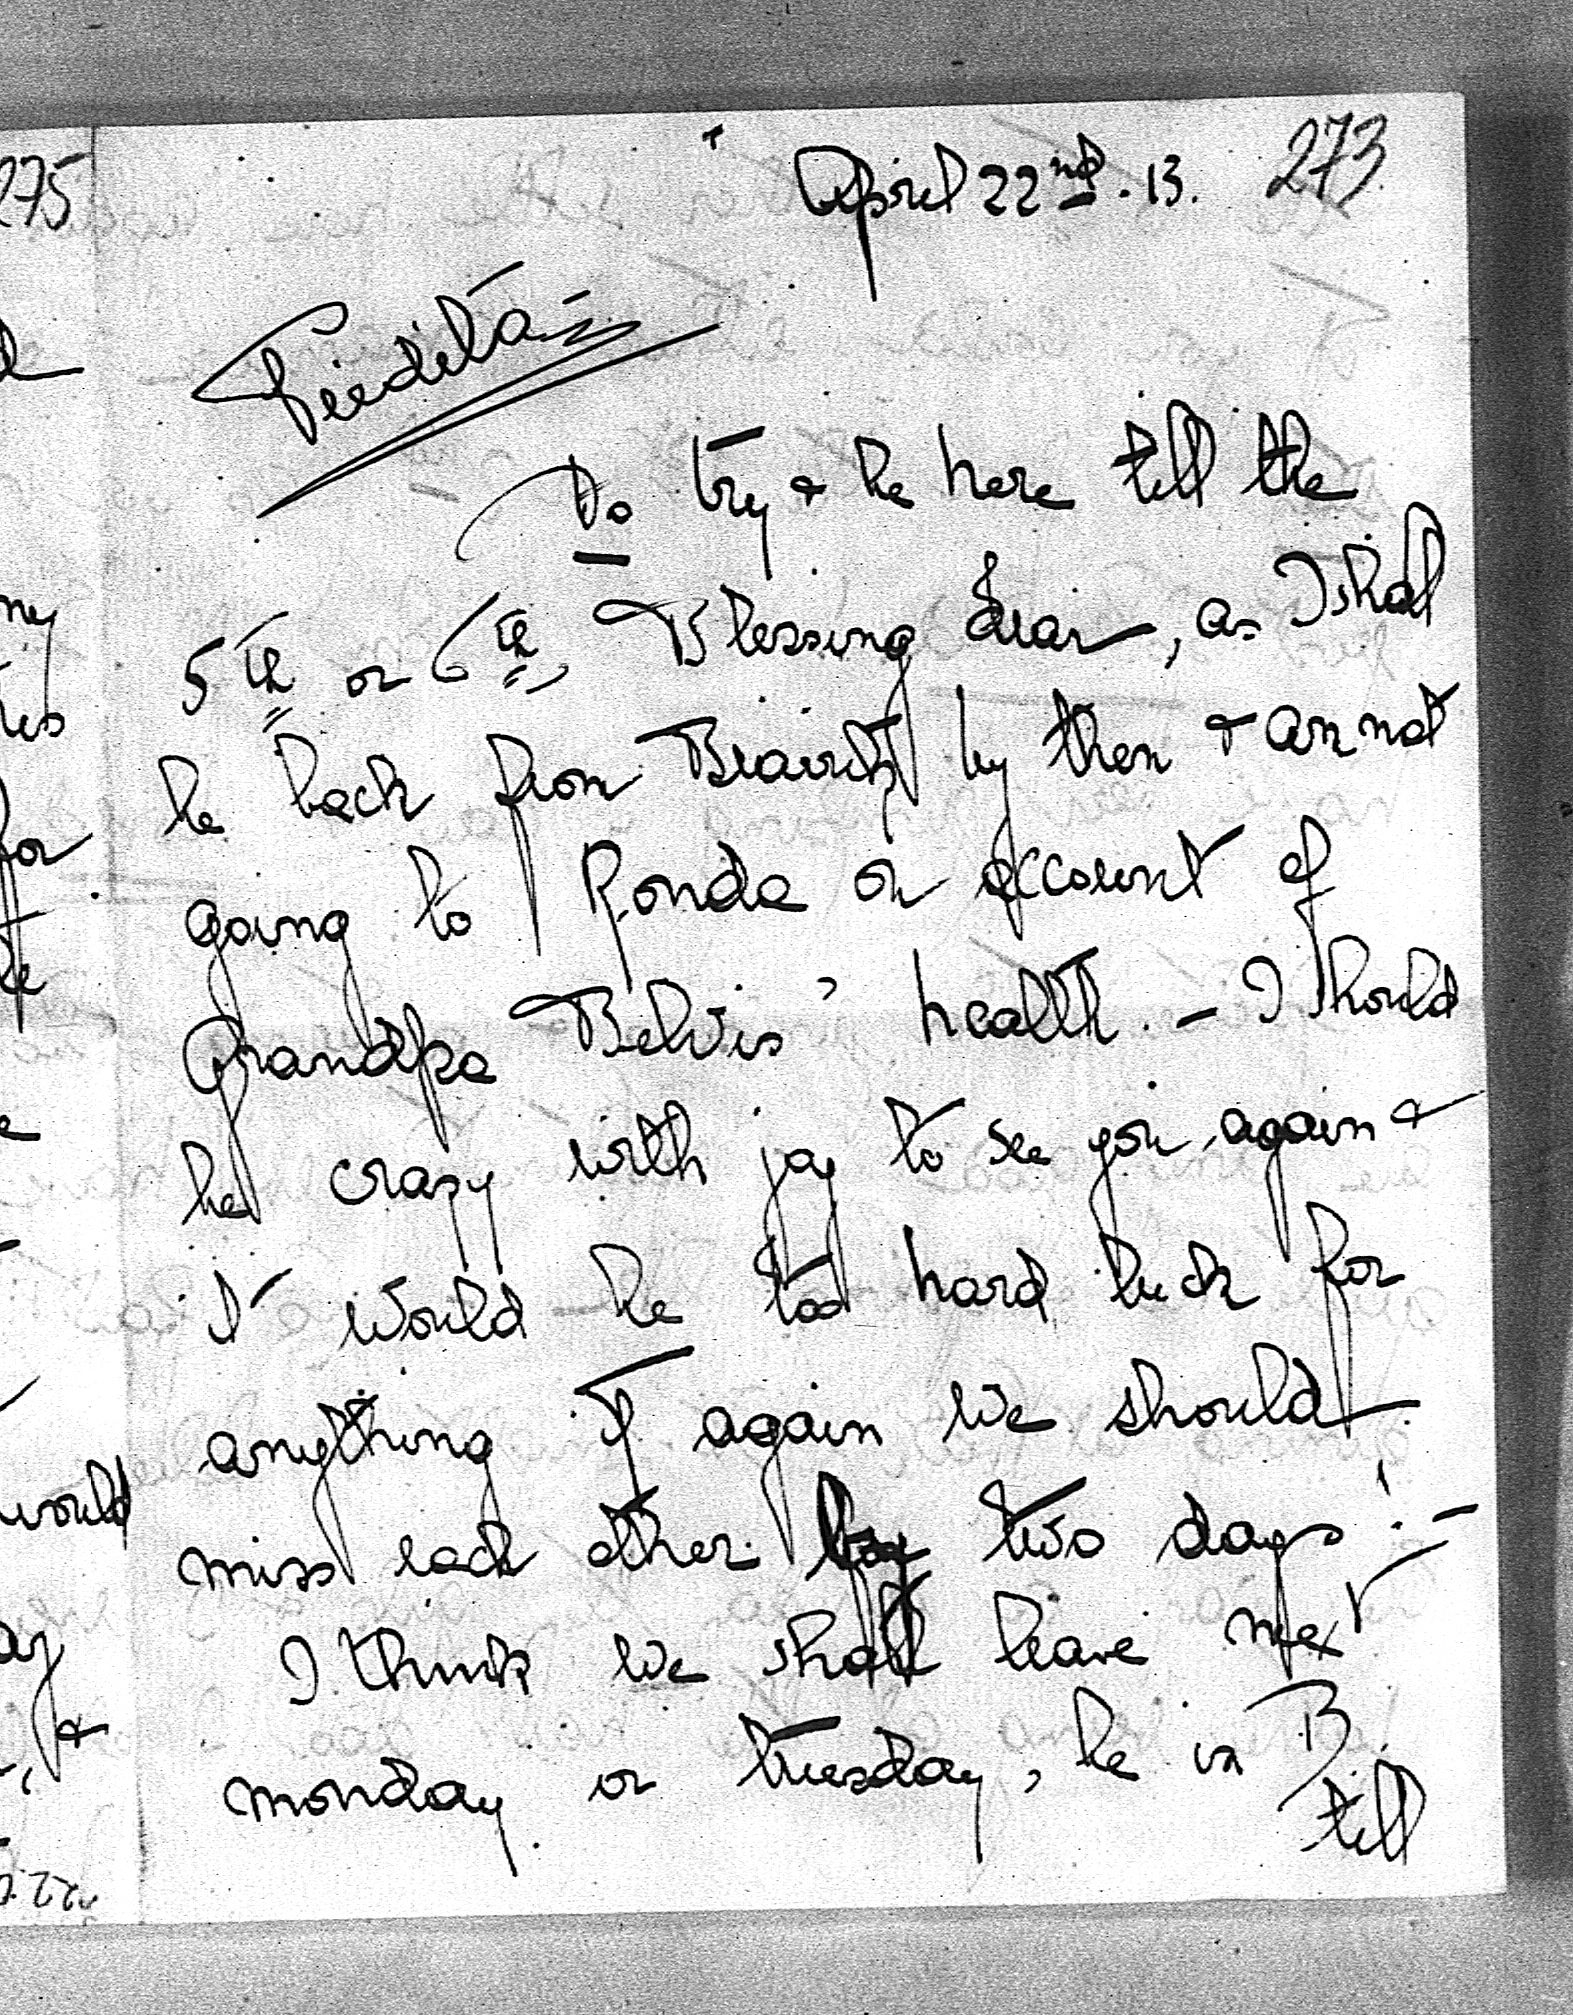 273
April 22nd. 13.
Do try & be here till the
5th or 6th, Blessing dear, as I shall
be back from Biarritz by then & am not
going to Ronda on account of
Grandpa Belvis' health. - I should
be crazy with joy to see you again &
it would be too hard luck for
anything if again we should
miss each other by two days! -
I think we shall leave next
monday or tuesday, be in B.
till
275
ny
for
would
ay
&